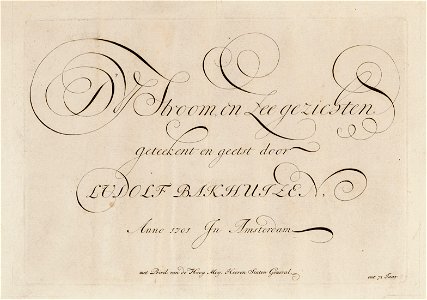 D'Y Stroom, en Zee gezichten
Geteekent en geetst door
LUDOLF BAKHUIZEN,
Anno 1701 In Amsterdam
met Previl van de Hoog. Moog. Heeren Staten Generael
aet 71 Jaar